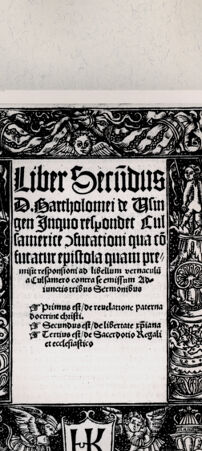 Liber Secūdus
D. Bartholomei de Usin
gen Inquo respondet Cul
samerice ɔfutationi qua cō
futatur epistola quam pre-
misit responsioni ad libellum vernaculū
a Culsamero contra se emissum Ad
iunctis tribus Sermonibus
Primus est/ de reuelatione paterna
doctrine christi.
Secundus est/ de libertate xp̄iana
Tertius est/ de Sacerdotio Regali
et ecclesiastico
HK